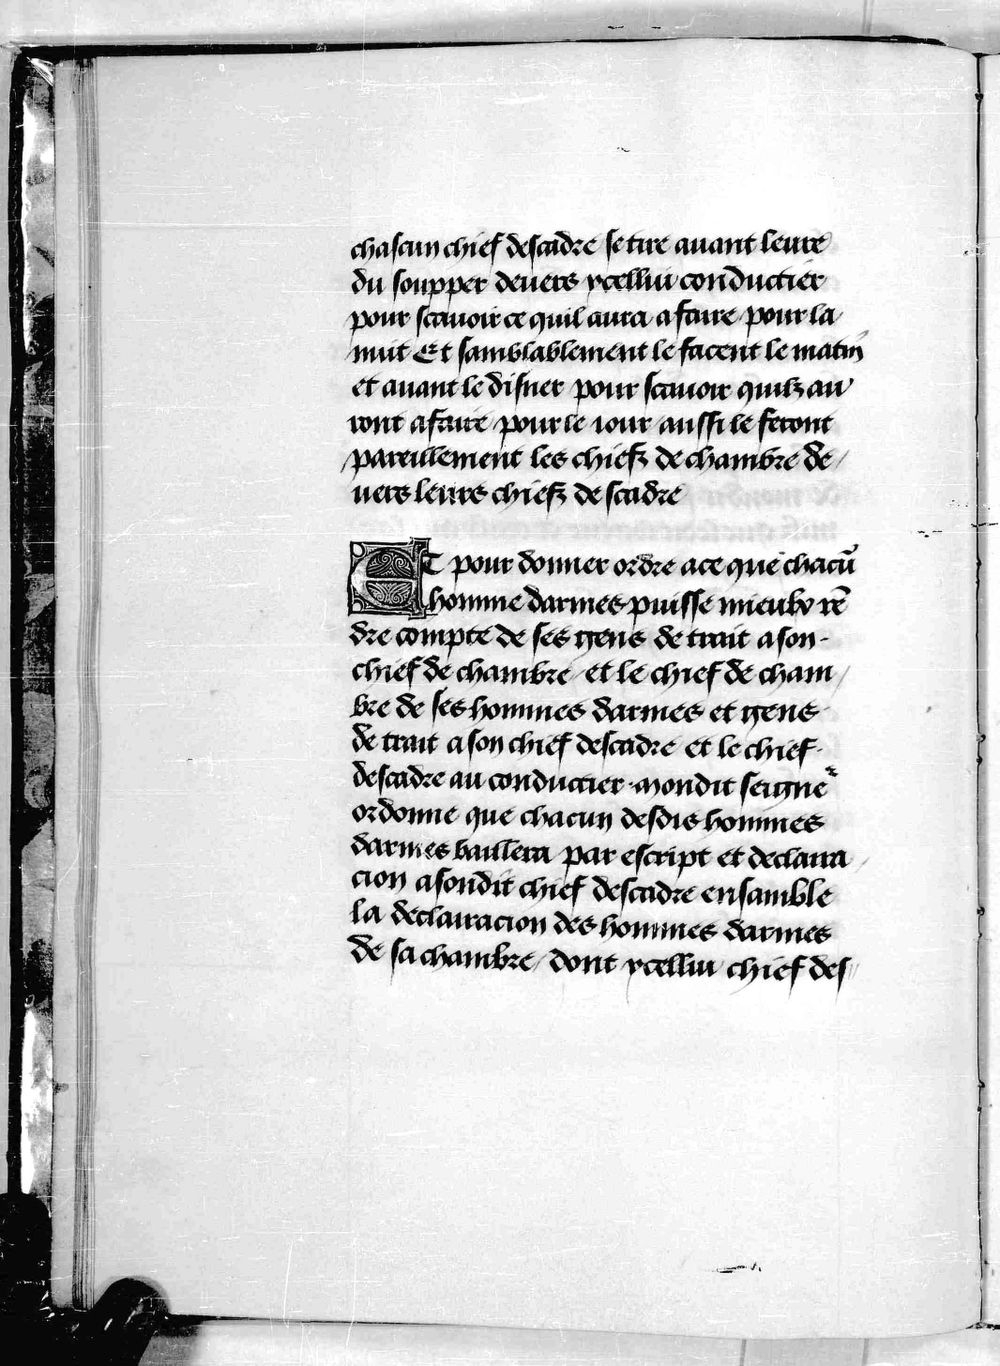 chascun chief descadre se tire auant leure
du soupper deuers ycellui conductier
pour scauoir ce quil aura a faire pour la
nuit Et samblablement le facent le matin
et auant le disner pour scauoir quilz au
ront a faire pour le iour aussi le feront
pareillement les chiefz de chambre de
uers leurs chiefz de scadre
ET pour donner ordre ace que chacū
homme darmes puisse mieulx rē
dre compte de ses gens de trait a son
chief de chambre et le chief de cham
bre de ses hommes darmes et gens
de trait a son chief descadre et le chief
descadre au conductier mondit seigne^r
ordonne que chacun desdis hommes
darmes baillera par escript et declaira
cion a sondit chief descadre ensamble
la declairacion des hommes darmes
de sa chambre dont ycellui chief des